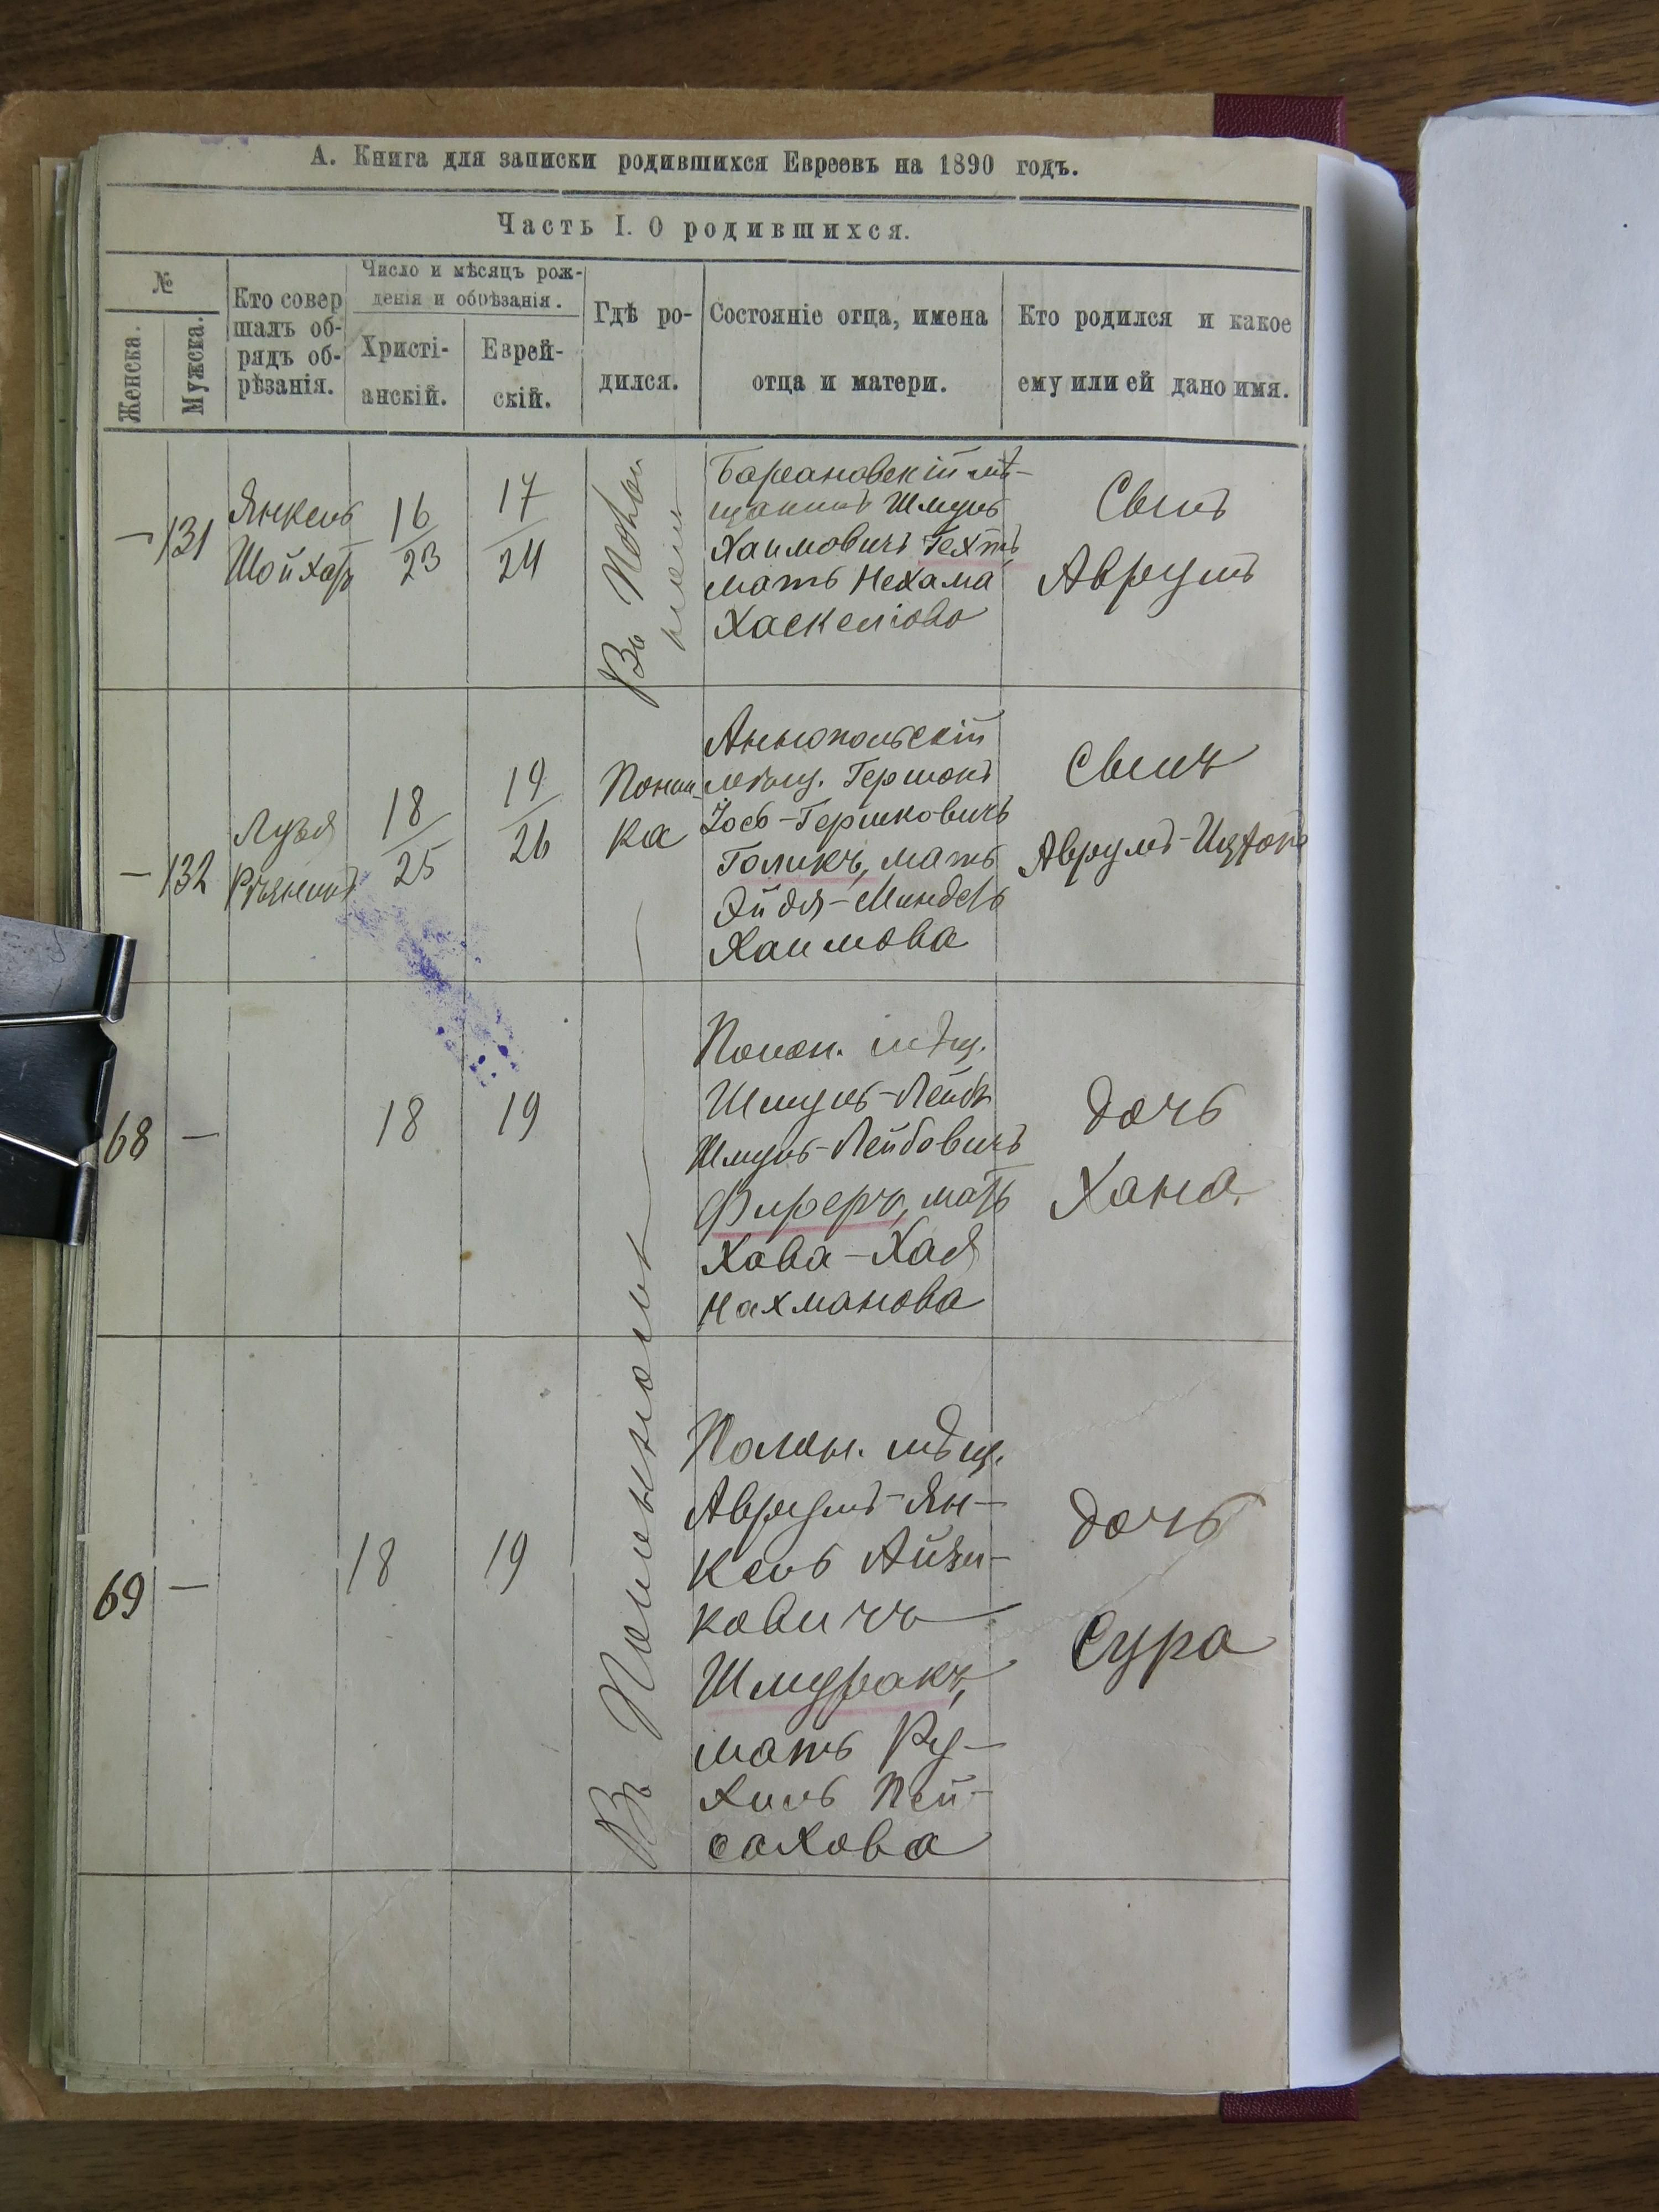 А. Книга для записки родившихся Евреевъ на 1890 годъ.
Часть I. О родившихся.
№
Женска.
Мужска.
Кто совер
шалъ об-
рядъ об-
рѣзанія.
Число и мѣсяцъ рож-
денія и обрѣзанія.
Христі-
анскій.
Еврей-
скій.
Гдѣ ро-
дился.
Состояніе отца, имена
отца и матери.
Кто родился и какое
ему или ей дано имя.
— 131
Янкель
Шойхетъ
16
23
17
24
Въ
мѣ-
щанинъ Шмуль
Хаимовичъ Гехтъ,
мать Нехама
Хаскелiова
Сынъ
Аврумъ
— 132
Лузя
18
25
19
26
Понин-
ка
Аннопольскій
мѣщ. Гершонъ
Іось-Гершковичъ
Голикъ, мать
Эйдя-Миндель
Хаимова
Сынъ
Аврумъ-Ицхокъ
68 —
18
19
Полон. мѣщ.
Шмуль-Лейбъ
Шмуль-Лейбовичъ
Фиреръ, мать
Хава-Хая
Нахманова
дочь
Хана.
69 —
18
19
Въ Полонномъ
Полон. мѣщ.
Аврумъ-Ян-
кель Айзи-
ковичъ
Шмуракъ,
мать Ру-
хиль Пей-
сахова
дочь
Сура